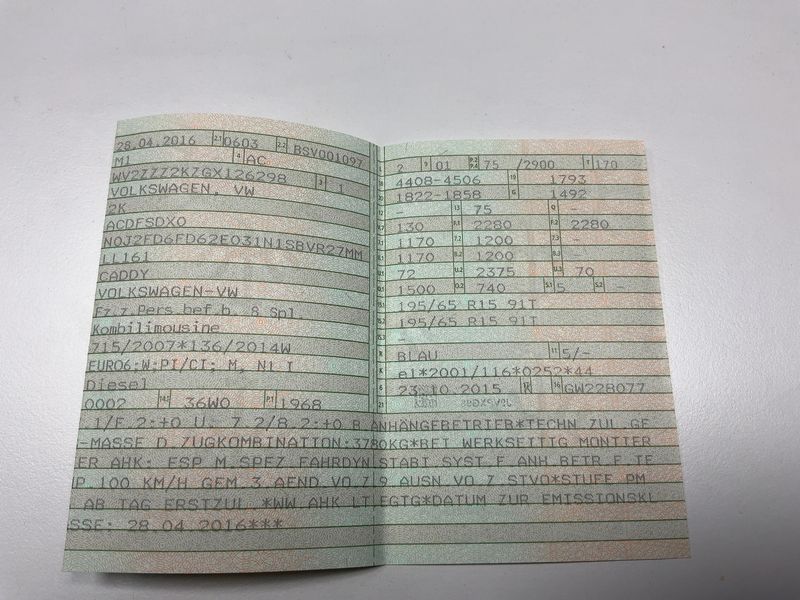 28.04.2016 2.1 0603 2.2 BSV001097
M1 4 AC
WV2ZZZ2KZGX126298 3 1
VOLKSWAGEN, VW
2K
ACDFSDX0
N0J2FD6FD62E031N1SBVR27MM
LL161
CADDY
VOLKSWAGEN-VW
Fz.z.Pers.bef.b. 8 Spl.
Kombilimousine
715/2007*136/2014W
EURO6;W;PI/CI; M, N1 I
Diesel
0002 14.1 36W0 P.1 1968
2 9 01 75 /2900 T 170
4408-4506 19 1793
1822-1858 G 1492
- 13 75 Q -
130 F.1 2280 F.2 2280
1170 7.2 1200 7.3 -
1170 8.2 1200 8.3 -
72 U.2 2375 U.3 70
1500 O.2 740 S.1 5 S.2 -
195/65 R15 91T
195/65 R15 91T
-
BLAU 11 5/-
e1*2001/116*0252*44
23.10.2015 K 16 GW228077
1/F.2:+0 U. 7.2/8.2:+0 B.ANHÄNGEBETRIEB*TECHN.ZUL.GE
-MASSE D.ZUGKOMBINATION:3780KG*BEI WERKSEITIG MONTIER
ER AHK: ESP M.SPEZ.FAHRDYN.STABI.SYST.F.ANH.BETR.F.TE
P.100 KM/H GEM.3.AEND.VO.Z.9.AUSN.VO.Z.STVO*STUFE PM
AB TAG ERSTZUL.*WW.AHK LT.EGTG*DATUM ZUR EMISSIONSKL
SSE: 28.04.2016***